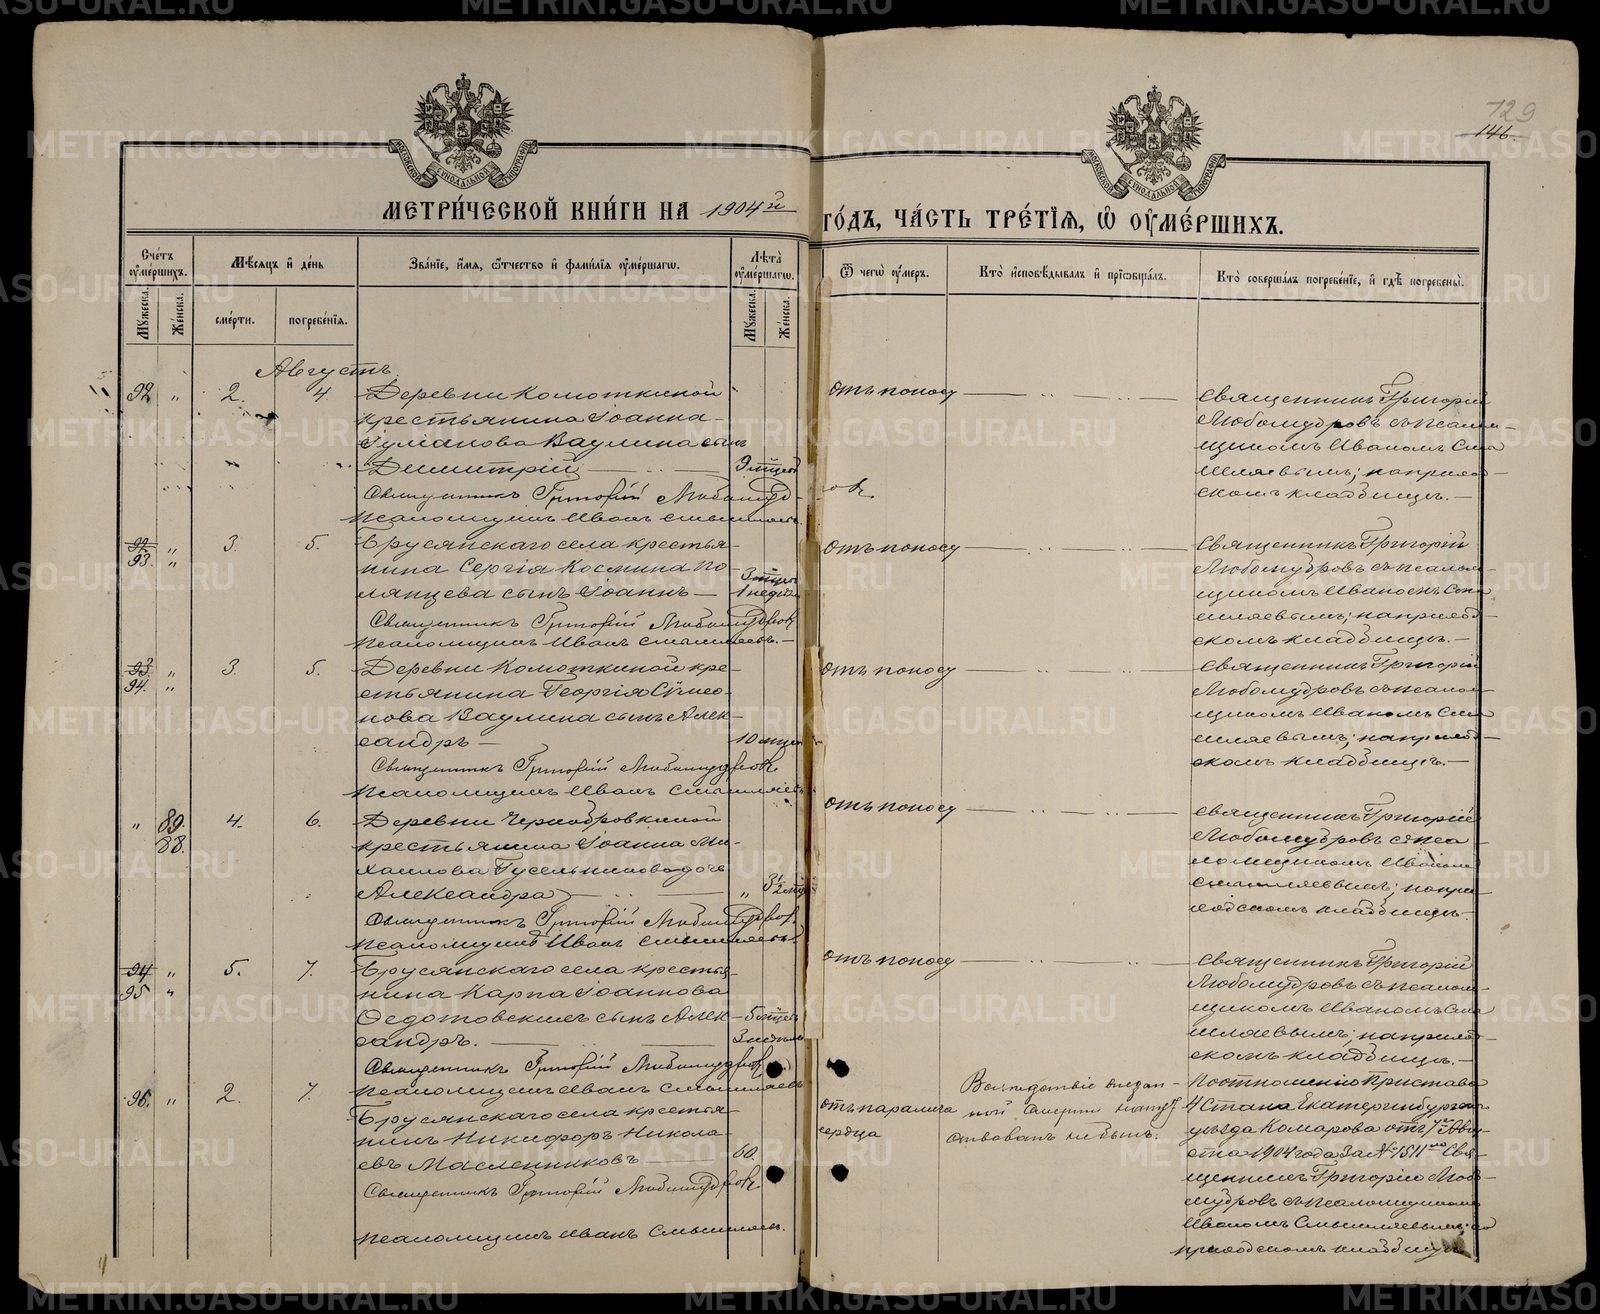 729
146.
МЕТРИ́ЧЕСКОЙ КНИ́ГИ НА 1904 й ГО́ДЪ, ЧА́СТЬ ТРЕ́ТЇѦ, Ѡ҆ ОУ҆МЕ́РШИХЪ.
Сче́тъ оу҆ме́ршихъ.
Мꙋ́жеска.
Же́нска.
Мѣ́сѧцъ и҆ де́нь
сме́рти.
погребе́нїѧ.
Зва́нїе, и҆́мѧ, ѻ҆́тчество и҆ фами́лїѧ оу҆ме́ршагѡ.
Лѣ́та оу҆ме́ршагѡ.
Мꙋ́жеска.
Же́нска.
Ѿ чегѡ̀ оу҆́меръ.
Кто̀ и҆сповѣ́дывалъ и҆ прїѡбща́лъ.
Кто̀ соверша́лъ погребе́нїе, и҆ гдѣ̀ погребены̀.
Августъ.
92 " 2. 4
Деревни Колоткиной
крестьянина Іоанна
Іуліанова Ваулина сынъ
Димитрій
9 мцевъ
Священникъ Григорій Любомудровъ
Псаломщикъ Иванъ Смышляевъ
отъ поносу
Священникъ Григорій
Любомудровъ съ псалом-
щикомъ Иваномъ Смы
шляевымъ; на приход-
скомъ кладбищѣ.
92 " 3. 5.
93. "
Брусянскаго села крестья-
нина Сергія Космина По
лянцева сынъ Іоаннъ
3 мцевъ
1 недѣли
Священникъ Григорій Любомудровъ
Псаломщикъ Иванъ Смышляевъ.
отъ поносу
Священникъ Григорій
Любомудровъ съ псалом-
щикомъ Иваномъ Смы
шляевымъ; на приход-
скомъ кладбищѣ.
93 " 3. 5.
94. "
Деревни Колоткиной кре-
стьянина Георгія Сѵмео-
нова Ваулина сынъ Алек-
сандръ
10 мцевъ
Священникъ Григорій Любомудровъ
Псаломщикъ Иванъ Смышляевъ
отъ поносу
Священникъ Григорій
Любомудровъ съ псалом-
щикомъ Иваномъ Смы
шляевымъ; на приход-
скомъ кладбищѣ.
" 89. 4. 6.
88.
Деревни Чернобровкиной
крестьянина Іоанна Ми-
хаилова Гусельникова дочь
Александра
" 3 1/2 мцевъ
Священникъ Григорій Любомудровъ
Псаломщикъ Иванъ Смышляевъ
отъ поносу
Священникъ Григорій
Любомудровъ съ пса
ломщикомъ Иваномъ
Смышляевымъ; на при
ходскомъ кладбищѣ.
94 " 5. 7.
95 "
Брусянскаго села крестья-
нина Карпа Іоаннова
Ѳедотовскихъ сынъ Алек-
сандръ.
5 мцевъ
Священникъ Григорій Любомудровъ
Псаломщикъ Иванъ Смышляевъ
отъ поносу
Священникъ Григорій
Любомудровъ съ псалом-
щикомъ Иваномъ Смы
шляевымъ; на приход-
скомъ кладбищѣ.
96. " 2. 7.
Брусянскаго села крестья-
нинъ Никифоръ Никола-
евъ Масленниковъ
60.
Священникъ Григорій Любомудровъ
Псаломщикъ Иванъ Смышляевъ.
отъ паралича
сердца
Вслѣдствіе внезап-
ной смерти напут
ствованъ не былъ.
По отношенію Пристава
4 Стана Екатеринбургскаго
уѣзда Комарова отъ 7го Авгу
ста 1904 года за № 1511 Свя-
щенникъ Григорій Любо-
мудровъ съ псаломщикомъ
Иваномъ Смышляевымъ; на
приходскомъ кладбищѣ
METRIKI.GASO-URAL.RU